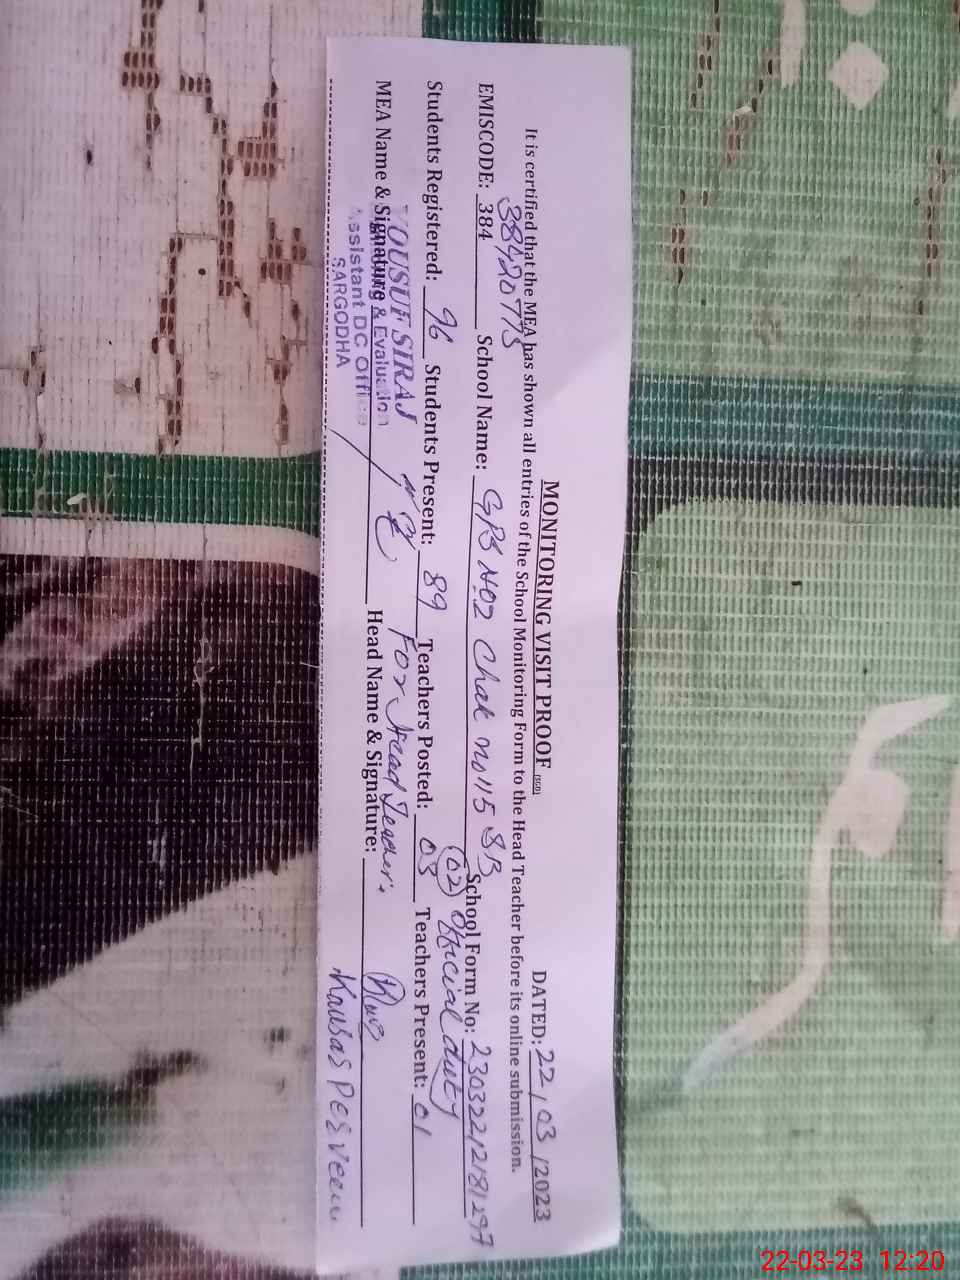 MONITORING VISIT PROOF (SGD)
DATED: 22/03/2023
It is certified that the MEA has shown all entries of the School Monitoring Form to the Head Teacher before its online submission.
38420775
EMISCODE: 384 School Name: GPS NO2 Chak no 115 SB School Form No:
(02) Official duty
Students Registered: 96 Students Present: 89 Teachers Posted: 03 Teachers Present: 01
YOUSUF SIRAJ For Head Teacher.
MEA Name & Signature Head Name & Signature:
Monitoring & Evaluation
Assistant DC Office
SARGODHA
Kausar Perveen
22-03-23 12:20